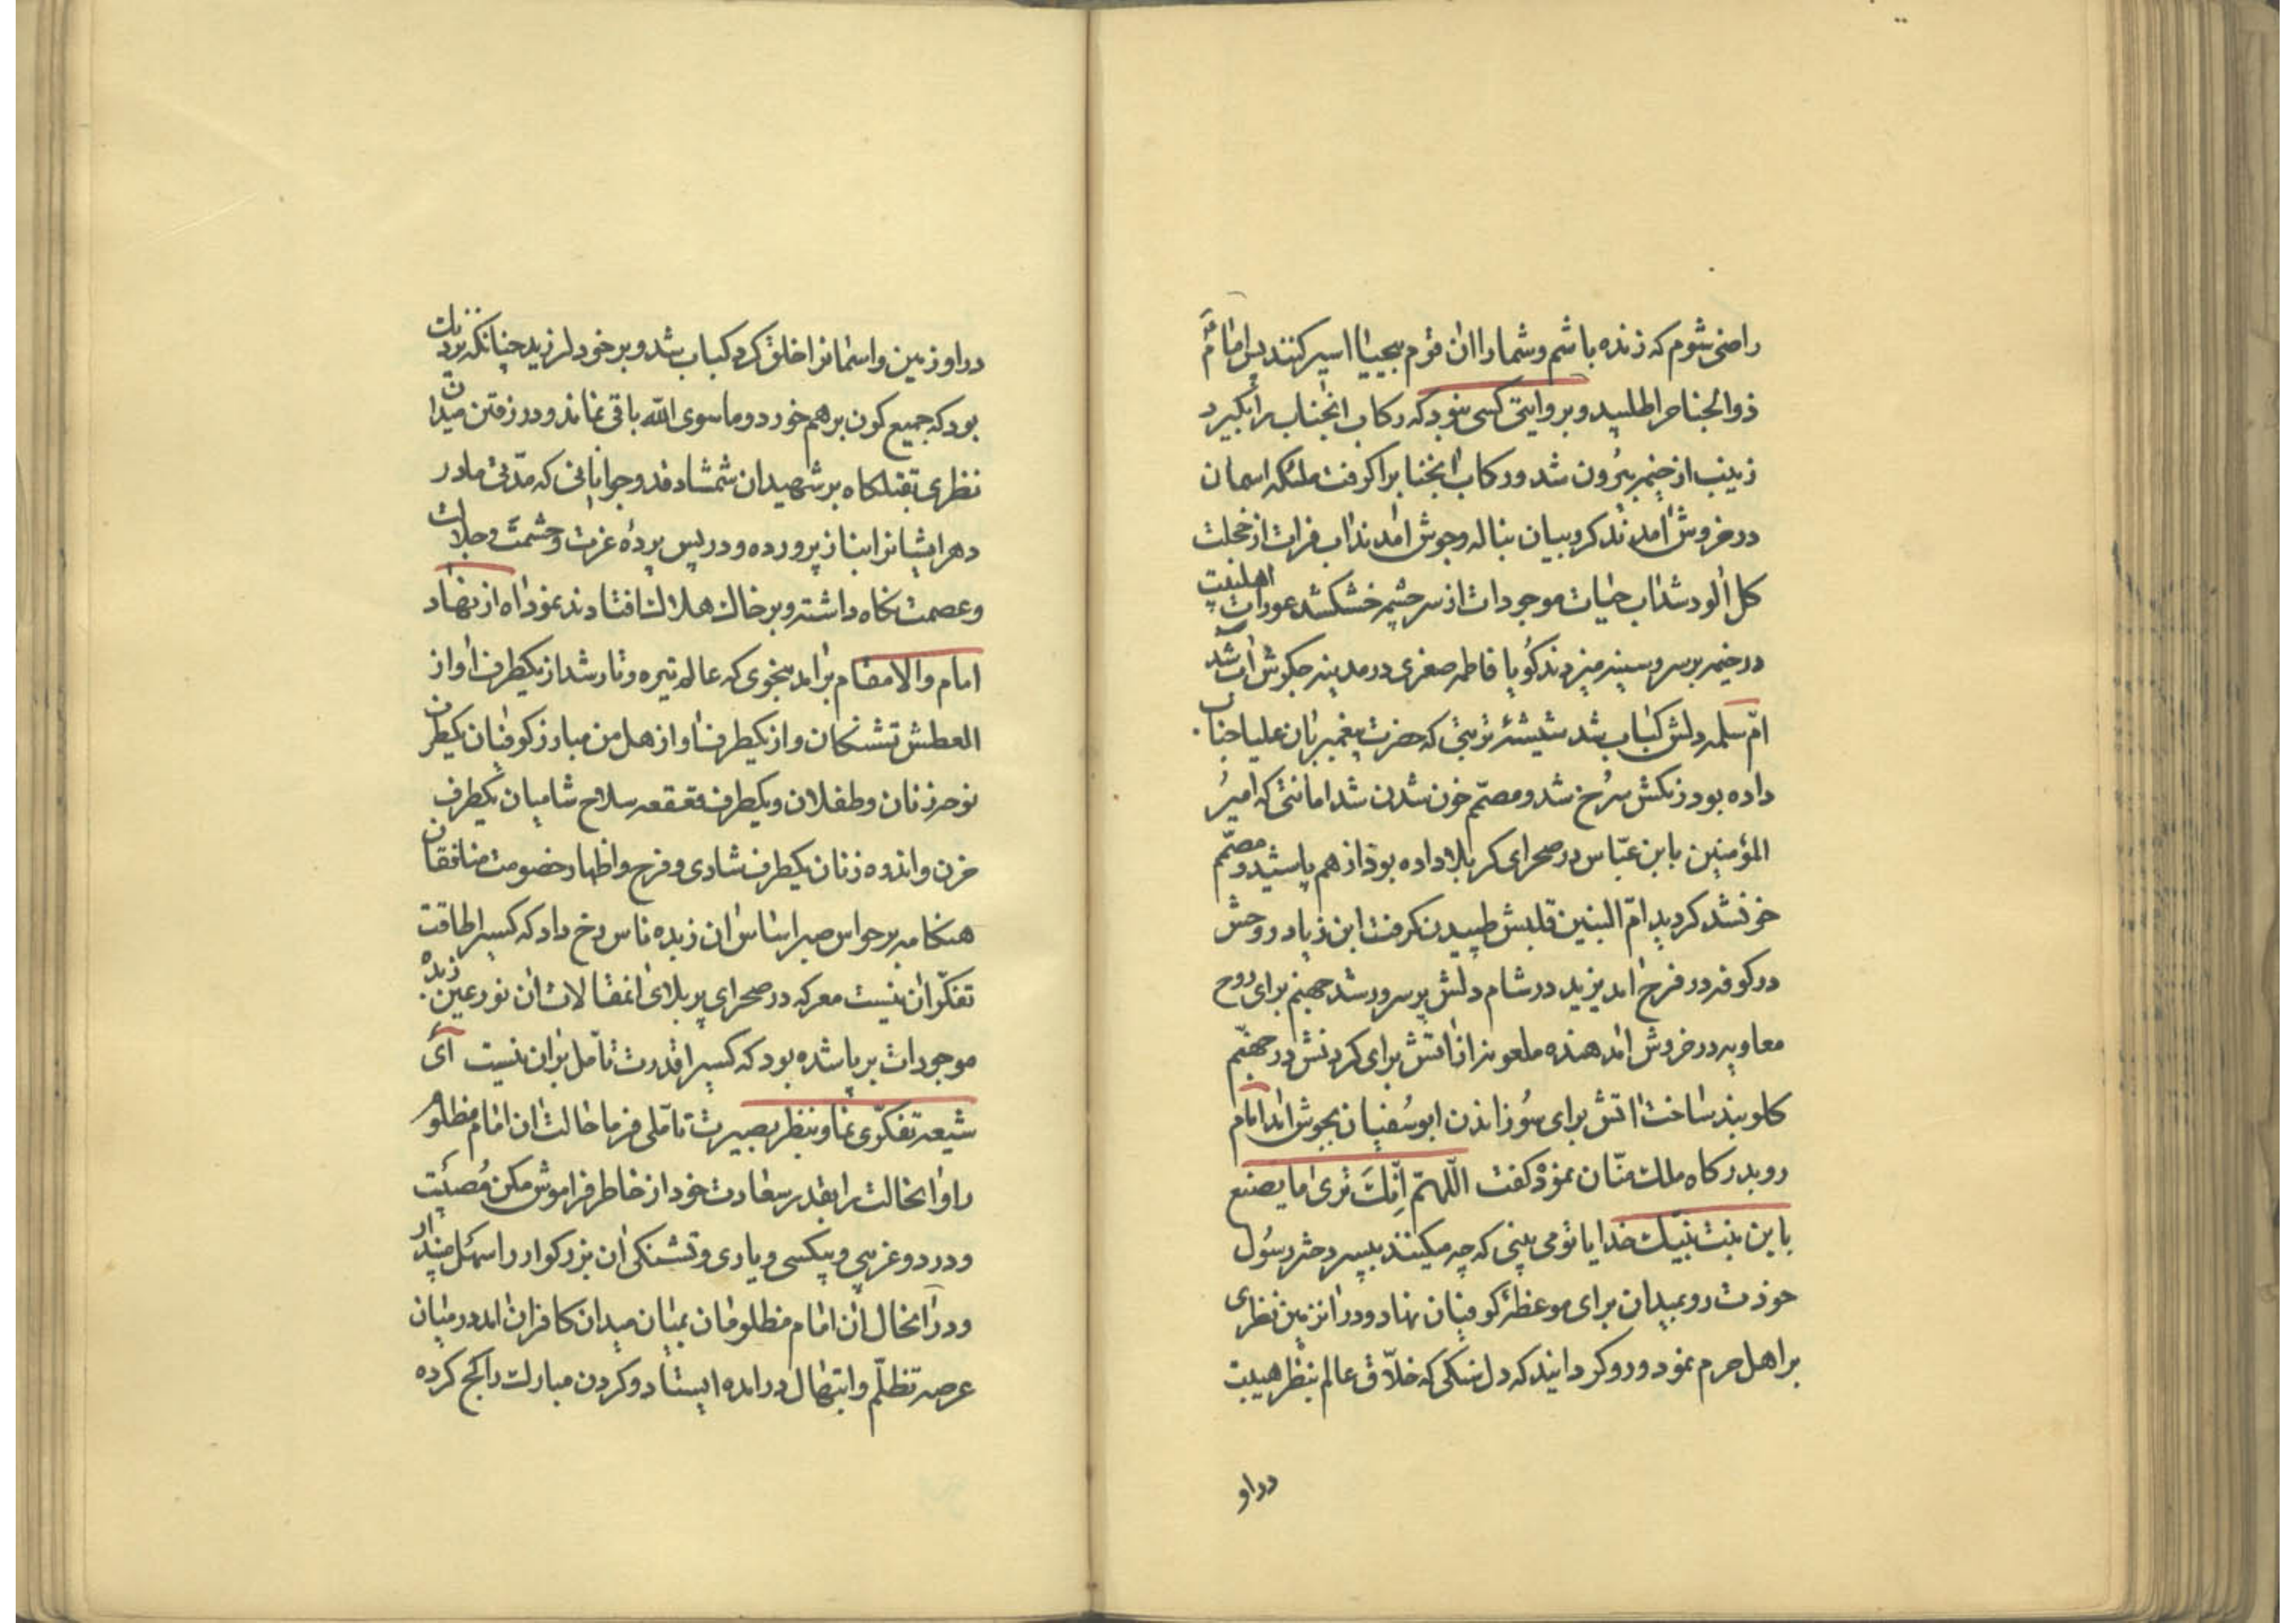 راضی شوم که زنده باشم و شما را ان قوم بیحیا اسیر کنند پس امام
ذوالجناح را طلبید و بروایتی کسی نبود که رکاب انجنابرا بگیرد
زینب از خیمه بیرون شد و رکاب انجنابرا گرفت ملئکه اسمان
در خروش امدند کروبیان بناله و جوش امدند اب فرات از خجلت
کل الود شد اب حیات موجودات از سرچشمه خشکشد عورات اهلبیت
در خیمه بر سر و سینه میزدند کویا فاطمه صغری در مدینه جکرش اب شد
امّ سلمه دلش کباب شد شیشهٔ تربتی که حضرت پیغمبر بان علیاجناب
داده بود رنکش سرخ شد و مصمّم خون شدن شد امانتی که امیر
المؤمنین بابن عبّاس در صحرای کربلا داده بود از هم پاشید و مصمّم
خونشد کردید امّ البنین قلبش طپیدن کرفت ابن زیاد روحش
در کوفه در فرح امد یزید در شام دلش پر سرور شد جهنم برای روح
معاویه در خروش امد هنده ملعونه از اتش برای کردنش در جهنّم
کلوبند ساخت اتش برای سوزاندن ابوسفیان بجوش امد امام
رو بدرکاه ملک منّان نمود کفت اللّهمّ اِنّکَ تری ما یصنع
بابن بنت نبیّک خدایا تو می بینی که چه میکنند بپسر دختر رسول
خودت رو بمیدان برای موعظهٔ کوفیان نهاد و در انزمین نظری
بر اهل حرم نمود و رو کردانید که دل سنکی که خلّاق عالم بنظر هیبت
در او
در او زمین و اسمانرا خلق کرد کباب شد و بر خود لرزید چنانکه نزدیک
بود که جمیع کون بر هم خورد و ما سوی الله باقی نماند و در رفتن میدان
نظری بقتلکاه بر شهیدان شمشاد قد و جوانانی که مدّتی مادر
دهر ایشانرا بناز پرورده و در پس پردهٔ عزت و حشمت و جلالت
و عصمت نکاه داشته و بر خاک هلاک افتادند نمود اه از نهاد
امام والامقام برامد بنحوی که عالم تیره و تار شد از یکطرف اواز
العطش تشنکان و از یکطرف اواز هل من مبارز کوفیان یکطرف
نوحه زنان و طفلان و یکطرف قعقعه سلاح شامیان یکطرف
حزن و اندوه زنان یکطرف شادی و فرح و اظهار خصومت منافقان
هنکامه بر حواس صبر اساس ان زبده ناس رخ داد که کسیرا طاقت
تفکّر ان نیست معرکه در صحرای پر بلای انفعالات ان نور عین زبده
موجودات بر پا شده بود که کسیرا قدرت تامّل بر ان نیست ای
شیعه تفکّری نما و بنظر بصیرت تامّلی فرما حالت ان امام مظلوم
را و انحالت را بقدر سعادت خود از خاطر فراموش مکن مصیبت
و درد و غریبی و بیکسی و یاری و تشنکی ان بزرکوار را سهل مپندار
و در انحال ان امام مظلومان بمیان میدان کافران امد و در میان
عرصه تظلّم و ابتهال در امده ایستاد و کردن مبارک را کج کرده